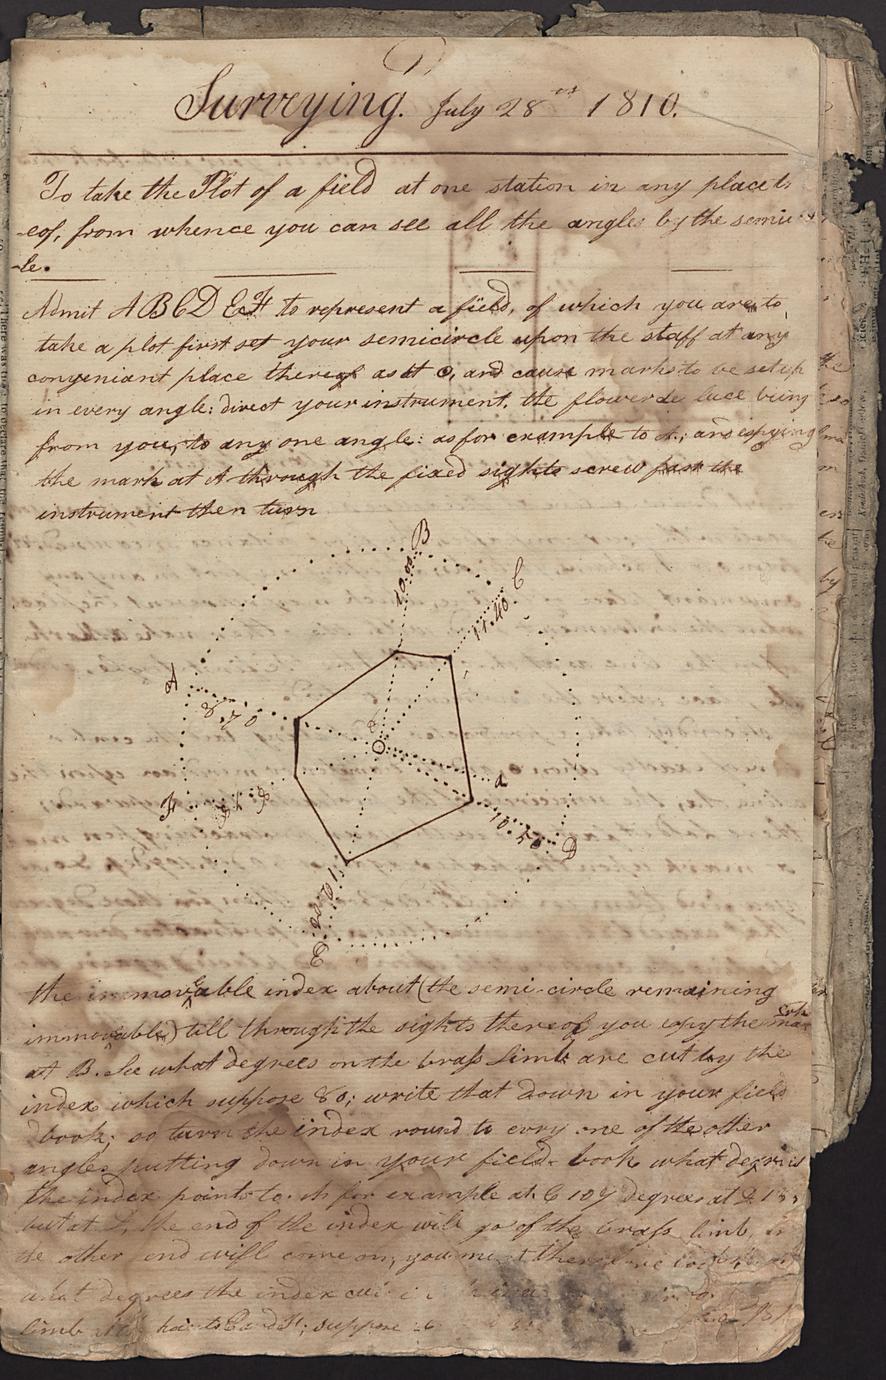 Surveying. July 28th 1810.
To take the Plot of a field at one station in any place th
-eof, from whence you can see all the angles by the semici
-le.
Admit A B C D E & F to represent a field, of which you are to
take a plot first set your semicircle upon the staff at any
conveniant place thereof as at O, and cause marks to be set up
in every angle: direct your instrument, the flower de luce being
from you, to any one angle: as for example to A; and espying
the mark at A through the fixed sights screw fast the
instrument then turn
B
10.00
C
11.40
A
8.70
a
O
d
F
10.50
D
10.00
E
the immovable index about (the semi-circle remaining
immovable) till through the sights thereof you espy the mark
at B. See what degrees on the brass Limb are cut by the
index which suppose 80; write that down in your field
book; so turn the index round to evry one of the other
angles putting down in your field-book what degrees
the index points to. As for example at C 107 degrees at D
but at the end of the index will go of the brass limb,
the other end will come on; you must therefore look
what degrees the index
limb suppose